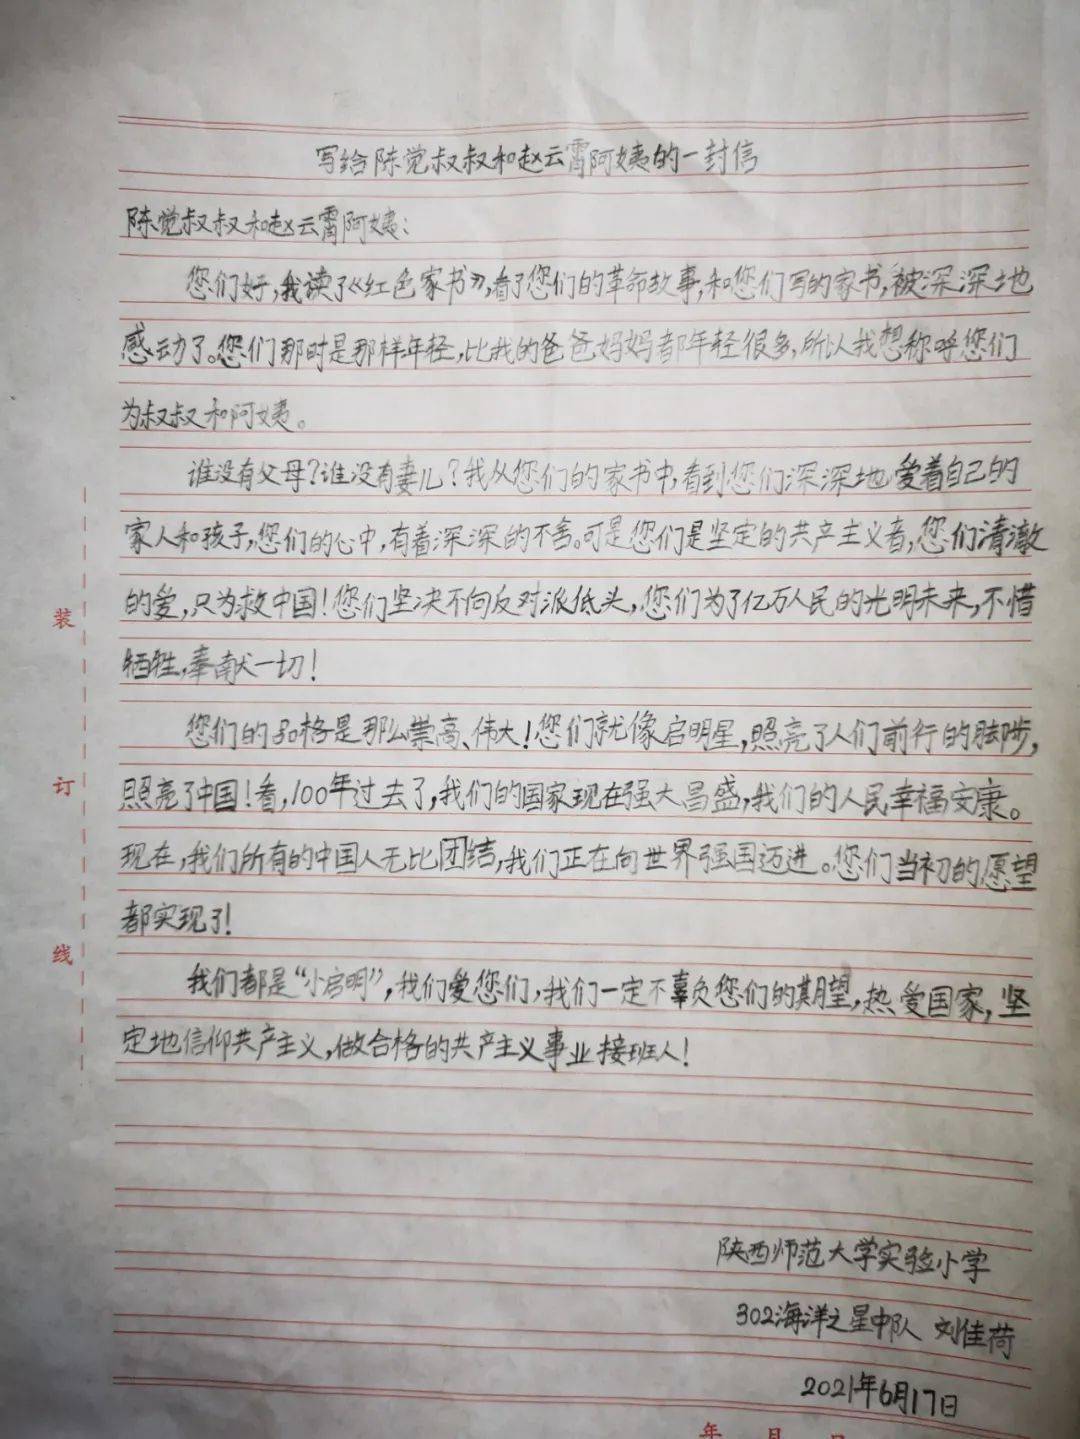 写给陈觉叔叔和赵云霄阿姨的一封信
陈觉叔叔和赵云霄阿姨：
您们好，我读了《红色家书》，看了您们的革命故事，和您们写的家书，被深深地
感动了。您们那时是那样年轻，比我的爸爸妈妈都年轻很多，所以我想称呼您们
为叔叔和阿姨。
谁没有父母？谁没有妻儿？我从您们的家书中，看到您们深深地爱着自己的
家人和孩子，您们的心中，有着深深的不舍。可是您们是坚定的共产主义者，您们清澈
的爱，只为救中国！您们坚决不向反对派低头，您们为了亿万人民的光明未来，不惜
牺牲，奉献一切！
您们的品格是那么崇高、伟大！您们就像启明星，照亮了人们前行的脚步，
照亮了中国！看，100年过去了，我们的国家现在强大昌盛，我们的人民幸福安康。
现在，我们所有的中国人无比团结，我们正在向世界强国迈进。您们当初的愿望
都实现了！
我们都是“小启明”，我们爱您们，我们一定不辜负您们的期望，热爱国家，坚
定地信仰共产主义，做合格的共产主义事业接班人！
陕西师范大学实验小学
302海洋之星中队 刘佳荷
2021年6月17日
年 月 日
装
订
线